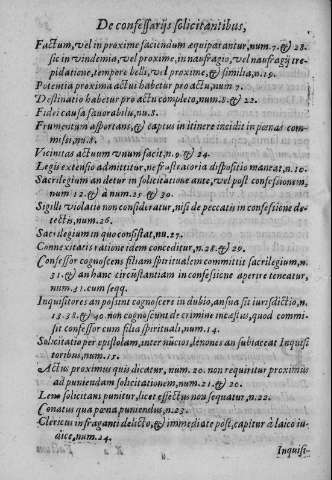 De confessarijs solicitantibus,
Factum, vel in proxime faciendum æquiparantur, num. 7. & 28.
sic in vindemia, vel proxime, in naufragio, vel naufragij tre-
pidatione, tempore belli, vel proxime, & similia, n. 19.
Potentia proxima actui habetur pro actu, num. 7.
Destinatio habetur pro actu completo, num. 8. & 22.
Fidei causa fauorabilis, nu. 8.
Frumentum asportans, & captus in itinere incidit in pœnas com-
missi, nu. 8.
Vicinitas actuum vnum facit, n. 9. & 24.
Legis extensio admittitur, ne frustratoria dispositio maneat, n. 10.
Sacrilegium an detur in solicitatione ante, vel post confessionem,
num. 12. & à num. 25. & 30.
Sigilli violatio non consideratur, nisi de peccatis in confessione de-
tectis, num. 26.
Sacrilegium in quo consistat, nu. 27.
Connexitatis ratione idem conceditur, n. 28. & 29.
Confessor cognoscens filiam spiritualem committit sacrilegium, n.
31. & an hanc circũstantiam in confessione aperire teneatur,
num. 31. cum seqq.
Inquisitores an possint cognoscere in dubio, an sua sit iurisdictio, n.
13. 38. & 40. non cognoscunt de crimine incestus, quod commi-
sit confessor cum filia spirituali, num. 14.
Solicitatio per epistolam, internuncios, lenones an subiaceat Inquisi
toribus, num. 15.
Actus proximus quis dicatur, num. 20. non requiritur proximus
ad puniendam solicitationem, num. 21. & 20.
Leno solicitans punitur, licet effectus non sequatur, n. 22.
Conatus qua pœna puniendus, n. 23.
Clericus in fraganti delicto, & immediate post, capitur à laico iu-
dice, num. 24.
Inquisi-